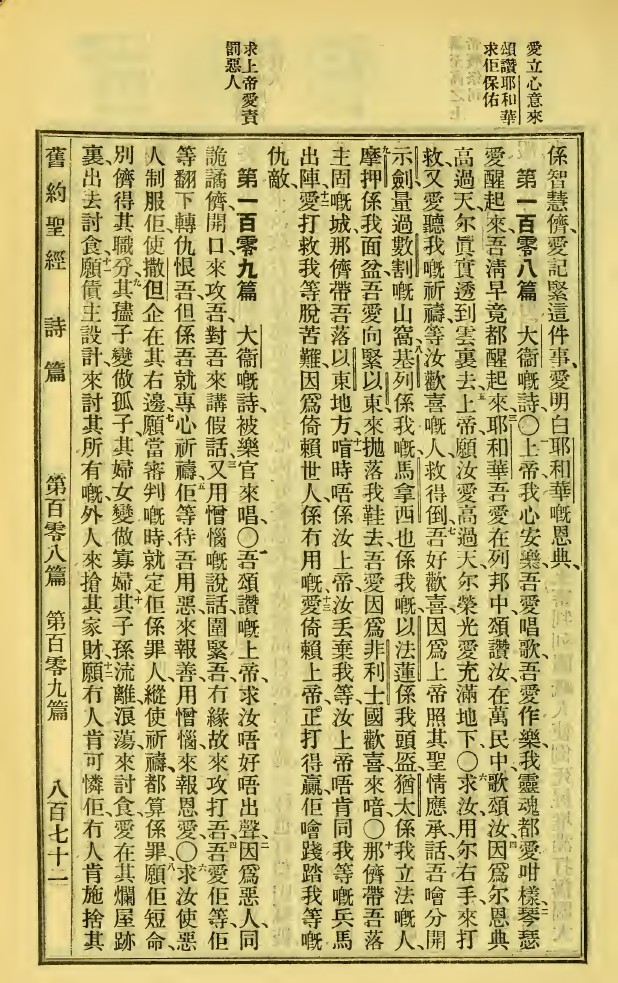 愛立心意來
頌讚耶和華
求佢保佑
求上帝愛責
罰惡人
係智慧儕愛記緊這件事、愛明白耶和華嘅恩典、
第一百零八篇 大衞嘅詩〇一上帝我心安樂、吾愛唱歌、吾愛作樂、我靈魂都愛咁樣、二琴瑟
愛醒起來、吾淸早竟都醒起來、三耶和華吾愛在列邦中頌讚汝、在萬民中歌頌汝、四因爲尔恩典
高過天、尔眞實透到雲裏去、五上帝願汝愛高過天、尔榮光愛充滿地下〇六求汝用尔右手來打
救、又愛聽我嘅祈禱、等汝歡喜嘅人救得倒、七吾好歡喜、因爲上帝照其聖情應承話、吾噲分開
示劍、量過數割嘅山窩、八基列係我嘅、馬拿西也係我嘅、以法蓮係我頭盔、猶太係我立法嘅人、
九摩押係我面盆、吾愛向緊以東來拋落我鞋去、吾愛因爲非利士國歡喜來喑〇十那儕帶吾落
主固嘅城、那儕帶吾落以東地方、十一喑時唔係汝上帝、汝丢棄我等、汝上帝唔肯同我等嘅兵馬
出陣、十二愛打救我等脫苦難、因爲倚賴世人係冇用嘅、十三愛倚賴上帝、正打得贏、佢噲踐踏我等嘅
仇敵、
第一百零九篇 大衞嘅詩、被樂官來唱〇一吾頌讚嘅上帝、求汝唔好唔出聲、二因爲惡人同
詭譎儕、開口來攻吾、對吾來講假話、三又用憎惱嘅說話圍緊吾、冇緣故來攻打吾、四吾愛佢等、佢
等翻下轉仇恨吾、但係吾就專心祈禱、五佢等待吾用惡來報善、用憎惱來報恩愛〇六求汝使惡
人制服佢、使撒但企在其右邊、七願當審判嘅時、就定佢係罪人、縱使祈禱、都算係罪、八願佢短命、
別儕得其職分、九其孻子變做孤子、其婦女變做寡婦、十其子孫流離浪蕩來討食、愛在其爛屋跡
裏出去討食、十一願債主設計、來討其所有嘅、外人來搶其家財、十二願冇人肯可憐佢、冇人肯施捨其
舊約聖經 詩篇 第百零八篇 第百零九篇 八百七十一